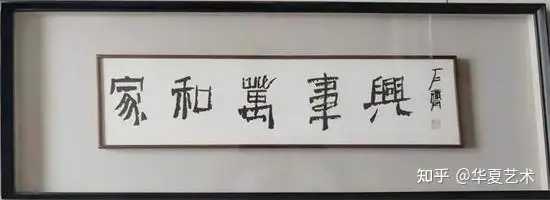 家和萬事興
石齊
知乎 @华夏艺术